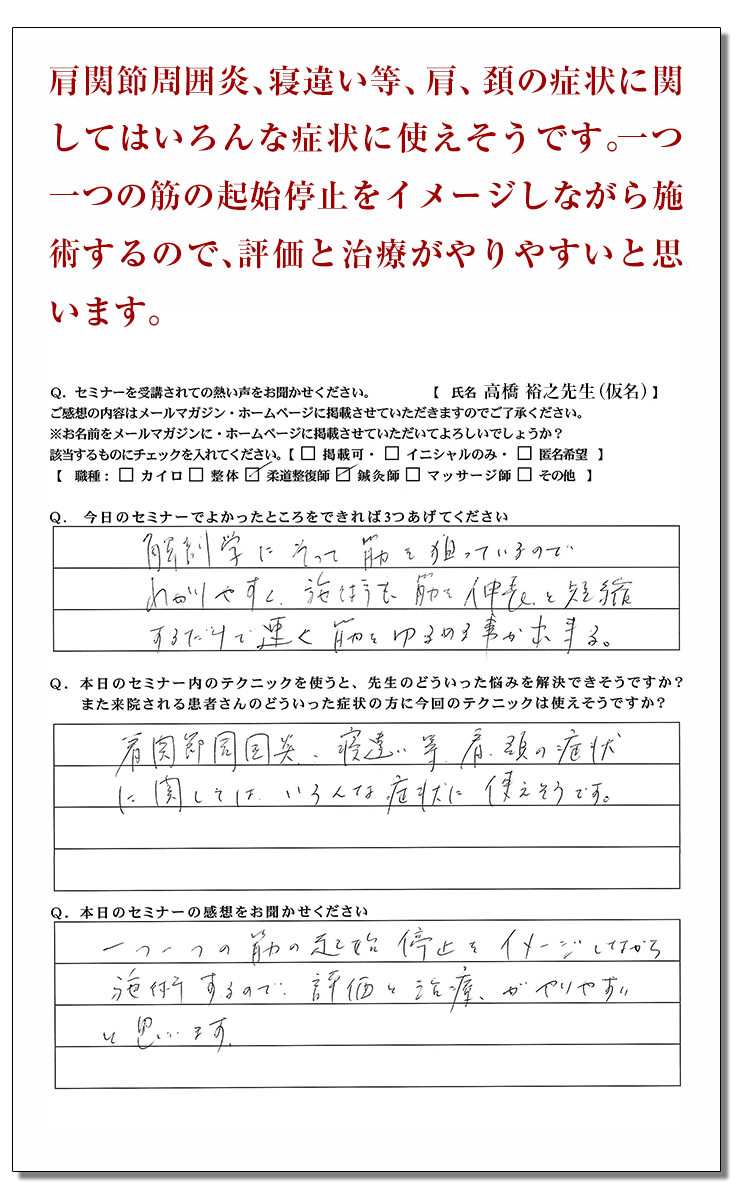 肩関節周囲炎、寝違い等、肩、頚の症状に関
してはいろんな症状に使えそうです。一つ
一つの筋の起始停止をイメージしながら施
術するので、評価と治療がやりやすいと思
います。
Q．セミナーを受講されての熱い声をお聞かせください。 【 氏名 高橋 裕之先生（仮名）】
ご感想の内容はメールマガジン・ホームページに掲載させていただきますのでご了承ください。
※お名前をメールマガジンに・ホームページに掲載させていただいてよろしいでしょうか？
該当するものにチェックを入れてください。【 □ 掲載可・ □ イニシャルのみ・ □ 匿名希望 】
【 職種： □ カイロ □ 整体 ☑ 柔道整復師 ☑ 鍼灸師 □ マッサージ師 □ その他 】
Q． 今日のセミナーでよかったところをできれば3つあげてください
解剖学にそって筋を狙っているので
わかりやすく、施術も筋を伸長と短縮
するだけで速く筋をゆるめる事が出来る。
Q．本日のセミナー内のテクニックを使うと、先生のどういった悩みを解決できそうですか？
また来院される患者さんのどういった症状の方に今回のテクニックは使えそうですか？
肩関節周囲炎、寝違い等、肩、頚の症状
に関しては、いろんな症状に使えそうです。
Q．本日のセミナーの感想をお聞かせください
一つ一つの筋の起始停止をイメージしながら
施術するので、評価と治療、がやりやすい
と思います。